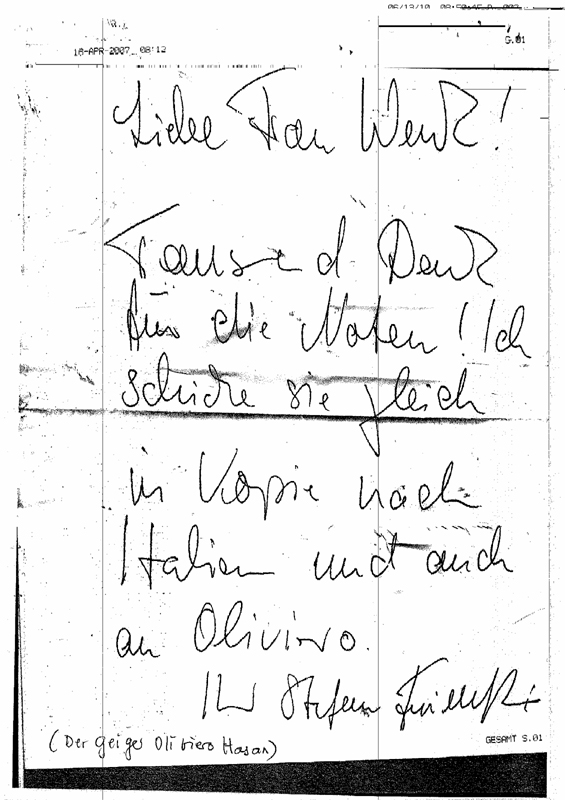 06/13/10
S.01
16-APR-2007 08:12
Liebe Frau Wenk!
Tausend Dank
für die Noten! Ich
schicke sie gleich
in Kopie nach
Italien und auch
an Oliviero.
Ihr Stefan
(Der Geiger Oliviero Hasan)
GESAMT S.01